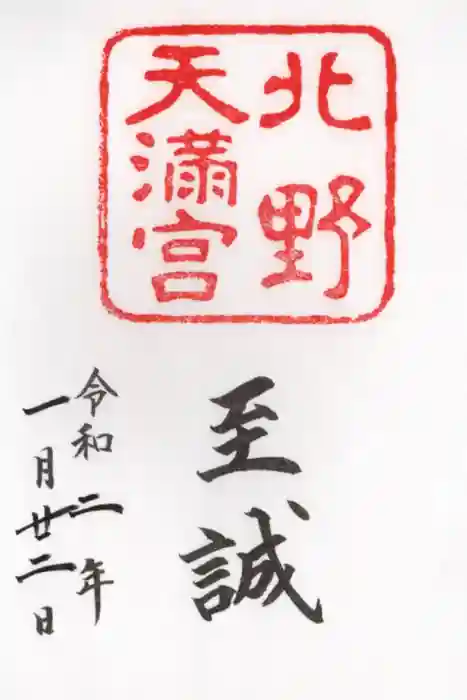 北野
天満宮
至誠
令和二年
一月廿二日